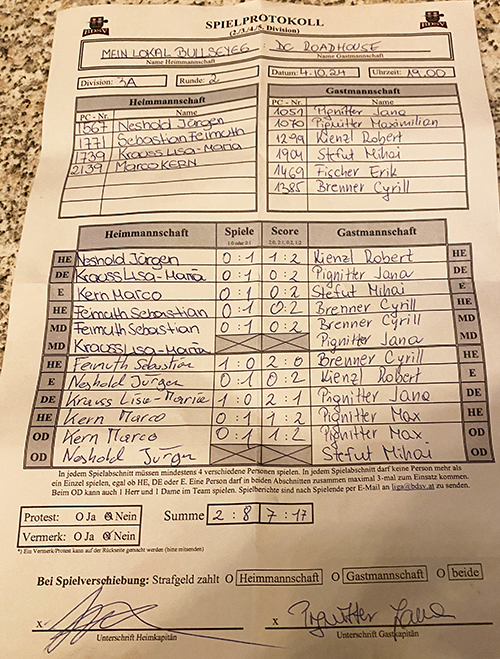 BDSV SPIELPROTOKOLL BDSV
(2./3./4./5. Division)
MEIN LOKAL BULLSEYEG : DC ROADHOUSE
Name Heimmannschaft Name Gastmannschaft
Division: 3A Runde: 2 Datum: 4.10.24 Uhrzeit: 19.00
Heimmannschaft Gastmannschaft
PC - Nr. Name PC - Nr. Name
1567 Neshold Jürgen 1051 Pignitter Jana
1771 Sebastian Feimuth 1070 Pignitter Maximilian
1739 Krauss Lisa-Maria 1299 Kienzl Robert
2139 Marco KERN 1901 Stefut Mihai
1469 Fischer Erik
1385 Brenner Cyrill
Heimmannschaft Spiele Score Gastmannschaft
1:0 oder 0:1 2:0, 2:1, 0:2, 1:2
HE Neshold Jürgen 0:1 1:2 Kienzl Robert HE
DE Krauss Lisa-Maria 0:1 1:2 Pignitter Jana DE
E Kern Marco 0:1 0:2 Stefut Mihai E
HE Feimuth Sebastian 0:1 0:2 Brenner Cyrill HE
MD Feimuth Sebastian 0:1 0:2 Brenner Cyrill MD
MD Krauss Lisa-Maria Pignitter Jana MD
HE Feimuth Sebastian 1:0 2:0 Brenner Cyrill HE
E Neshold Jürgen 0:1 0:2 Kienzl Robert E
DE Krauss Lisa-Marie 1:0 2:1 Pignitter Jana DE
HE Kern Marco 0:1 1:2 Pignitter Max HE
OD Kern Marco 0:1 1:2 Pignitter Max OD
OD Neshold Jürgen Stefut Mihai OD
In jedem Spielabschnitt müssen mindestens 4 verschiedene Personen spielen. In jedem Spielabschnitt darf keine Person mehr als
ein Einzel spielen, egal ob HE, DE oder E. Eine Person darf in beiden Abschnitten zusammen maximal 3-mal zum Einsatz kommen.
Beim OD kann auch 1 Herr und 1 Dame im Team spielen. Spielberichte sind nach Spielende per E-Mail an liga@bdsv.at zu senden.
Protest: O Ja O Nein Summe 2:8 7:17
Vermerk: O Ja O Nein
*) Ein Vermerk/Protest kann auf der Rückseite gemacht werden (bitte mitsenden)
Bei Spielverschiebung: Strafgeld zahlt O Heimmannschaft O Gastmannschaft O beide
x x Pignitter Jana
Unterschrift Heimkapitän Unterschrift Gastkapitän